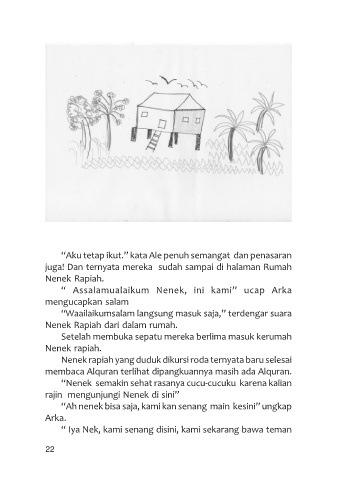 “Aku tetap ikut.” kata Ale penuh semangat dan penasaran
juga! Dan ternyata mereka sudah sampai di halaman Rumah
Nenek Rapiah.
“ Assalamualaikum Nenek, ini kami” ucap Arka
mengucapkan salam
“Waailaikumsalam langsung masuk saja,” terdengar suara
Nenek Rapiah dari dalam rumah.
Setelah membuka sepatu mereka berlima masuk kerumah
Nenek rapiah.
Nenek rapiah yang duduk dikursi roda ternyata baru selesai
membaca Alquran terlihat dipangkuannya masih ada Alquran.
“Nenek semakin sehat rasanya cucu-cucuku karena kalian
rajin mengunjungi Nenek di sini”
“Ah nenek bisa saja, kami kan senang main kesini” ungkap
Arka.
“ Iya Nek, kami senang disini, kami sekarang bawa teman
22